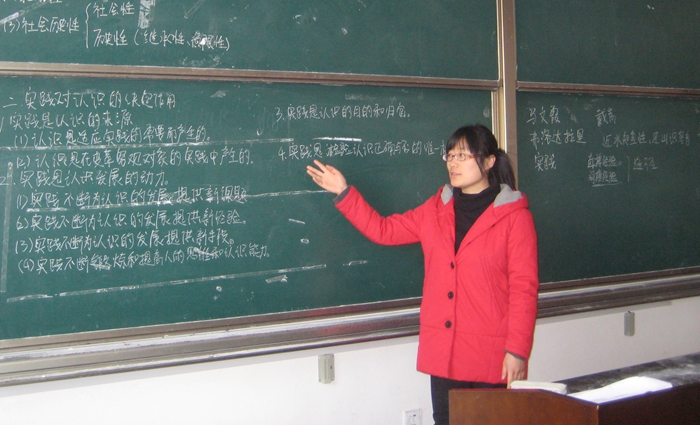 (3)社会历史性 社会性
历史性(继承性、局限性)
二.实践对认识的决定作用
1.实践是认识的来源
(1)认识是适应实践的需要而产生的。
(2)认识是在变革客观对象的实践中产生的.
2.实践是认识发展的动力.
(1)实践不断为认识的发展提供新课题
(2)实践不断为认识的发展提供新经验.
(3)实践不断为认识的发展提供新手段。
(4)实践不断锻炼和提高人的思维和认识能力.
3.实践是认识的目的和归宿。
4.实践是检验认识正确与否的唯一
实践